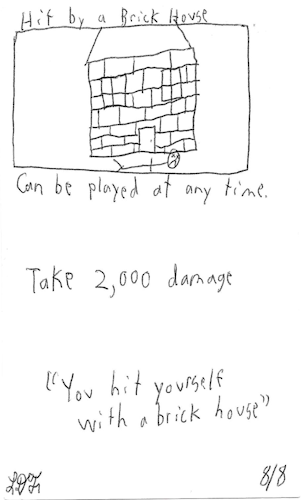 Hit by a Brick House
Can be played at any time.
Take 2,000 damage
"You hit yourself
with a brick house"
8/8